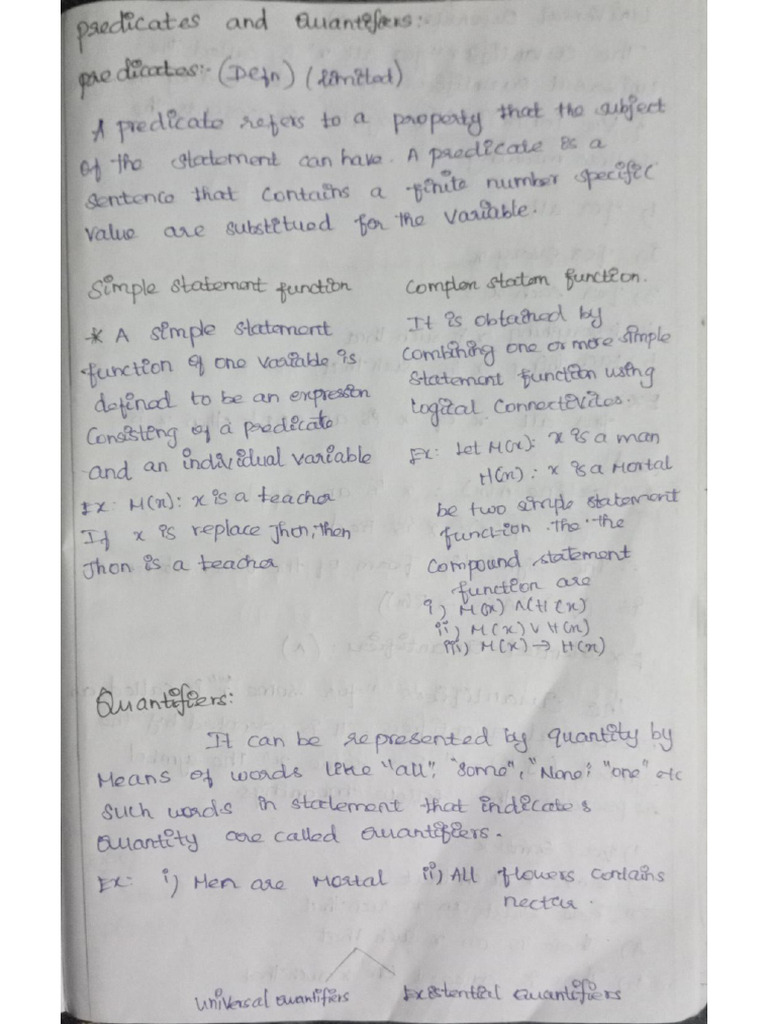 Predicates and Quantifiers:
Predicates:- (Defn) (limited)
A predicate refers to a property that the subject
of the statement can have. A predicate is a
sentence that contains a finite number specific
value are substitued for the variable.
Simple statement function
* A simple statement
function of one variable is
defined to be an expression
Consisting of a predicate
and an individual variable
Ex: M(x): x is a teacher
If x is replace Jhon, then
Jhon is a teacher
Complex statem function.
It is obtained by
combining one or more simple
statement function using
logical connectivites.
Ex: Let M(x): x is a man
H(x): x is a Mortal
be two simple statement
function the the
compound statement
function are
i) M(x) ∧ (H(x)
ii) M(x) ∨ H(x)
iii) M(x) → H(x)
Quantifiers:
It can be represented by quantity by
Means of words like "all", "some", "None", "one" etc
such words in statement that indicates
quantity are called quantifiers.
Ex: i) Men are Mortal ii) All flowers contains
nectar.
Universal quantifiers Existential Quantifiers